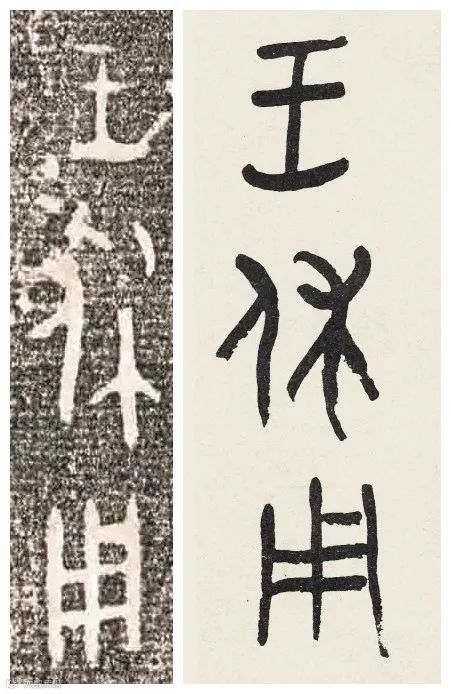 王休用
王休用